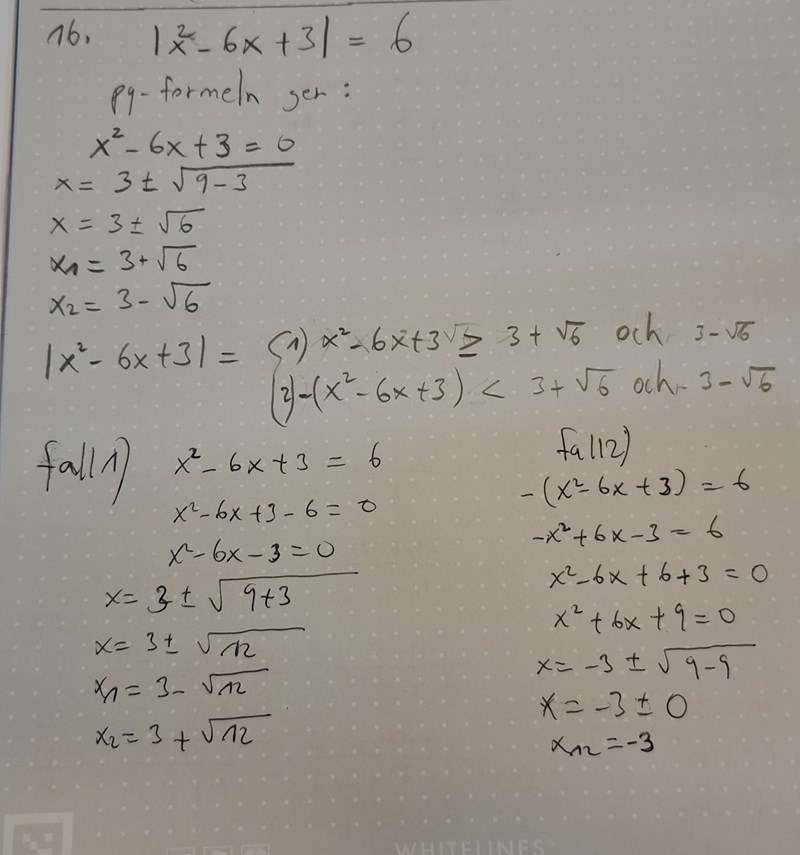 16. |x²-6x+3| = 6
pq-formeln ger:
x²-6x+3=0
x= 3±√9-3
x = 3±√6
x1= 3+√6
x2= 3-√6
|x²-6x+3| = { 1) x²-6x+3 ≥ 3+√6 och 3-√6
2) -(x²-6x+3) < 3+√6 och 3-√6
fall 1) x²-6x+3 = 6
x²-6x+3-6=0
x²-6x-3=0
x= 3±√9+3
x= 3±√12
x1= 3-√12
x2= 3+√12
fall 2)
-(x²-6x+3)=6
-x²+6x-3=6
x²-6x+6+3=0
x²+6x+9=0
x= -3±√9-9
x= -3±0
x12=-3
WHITELINES